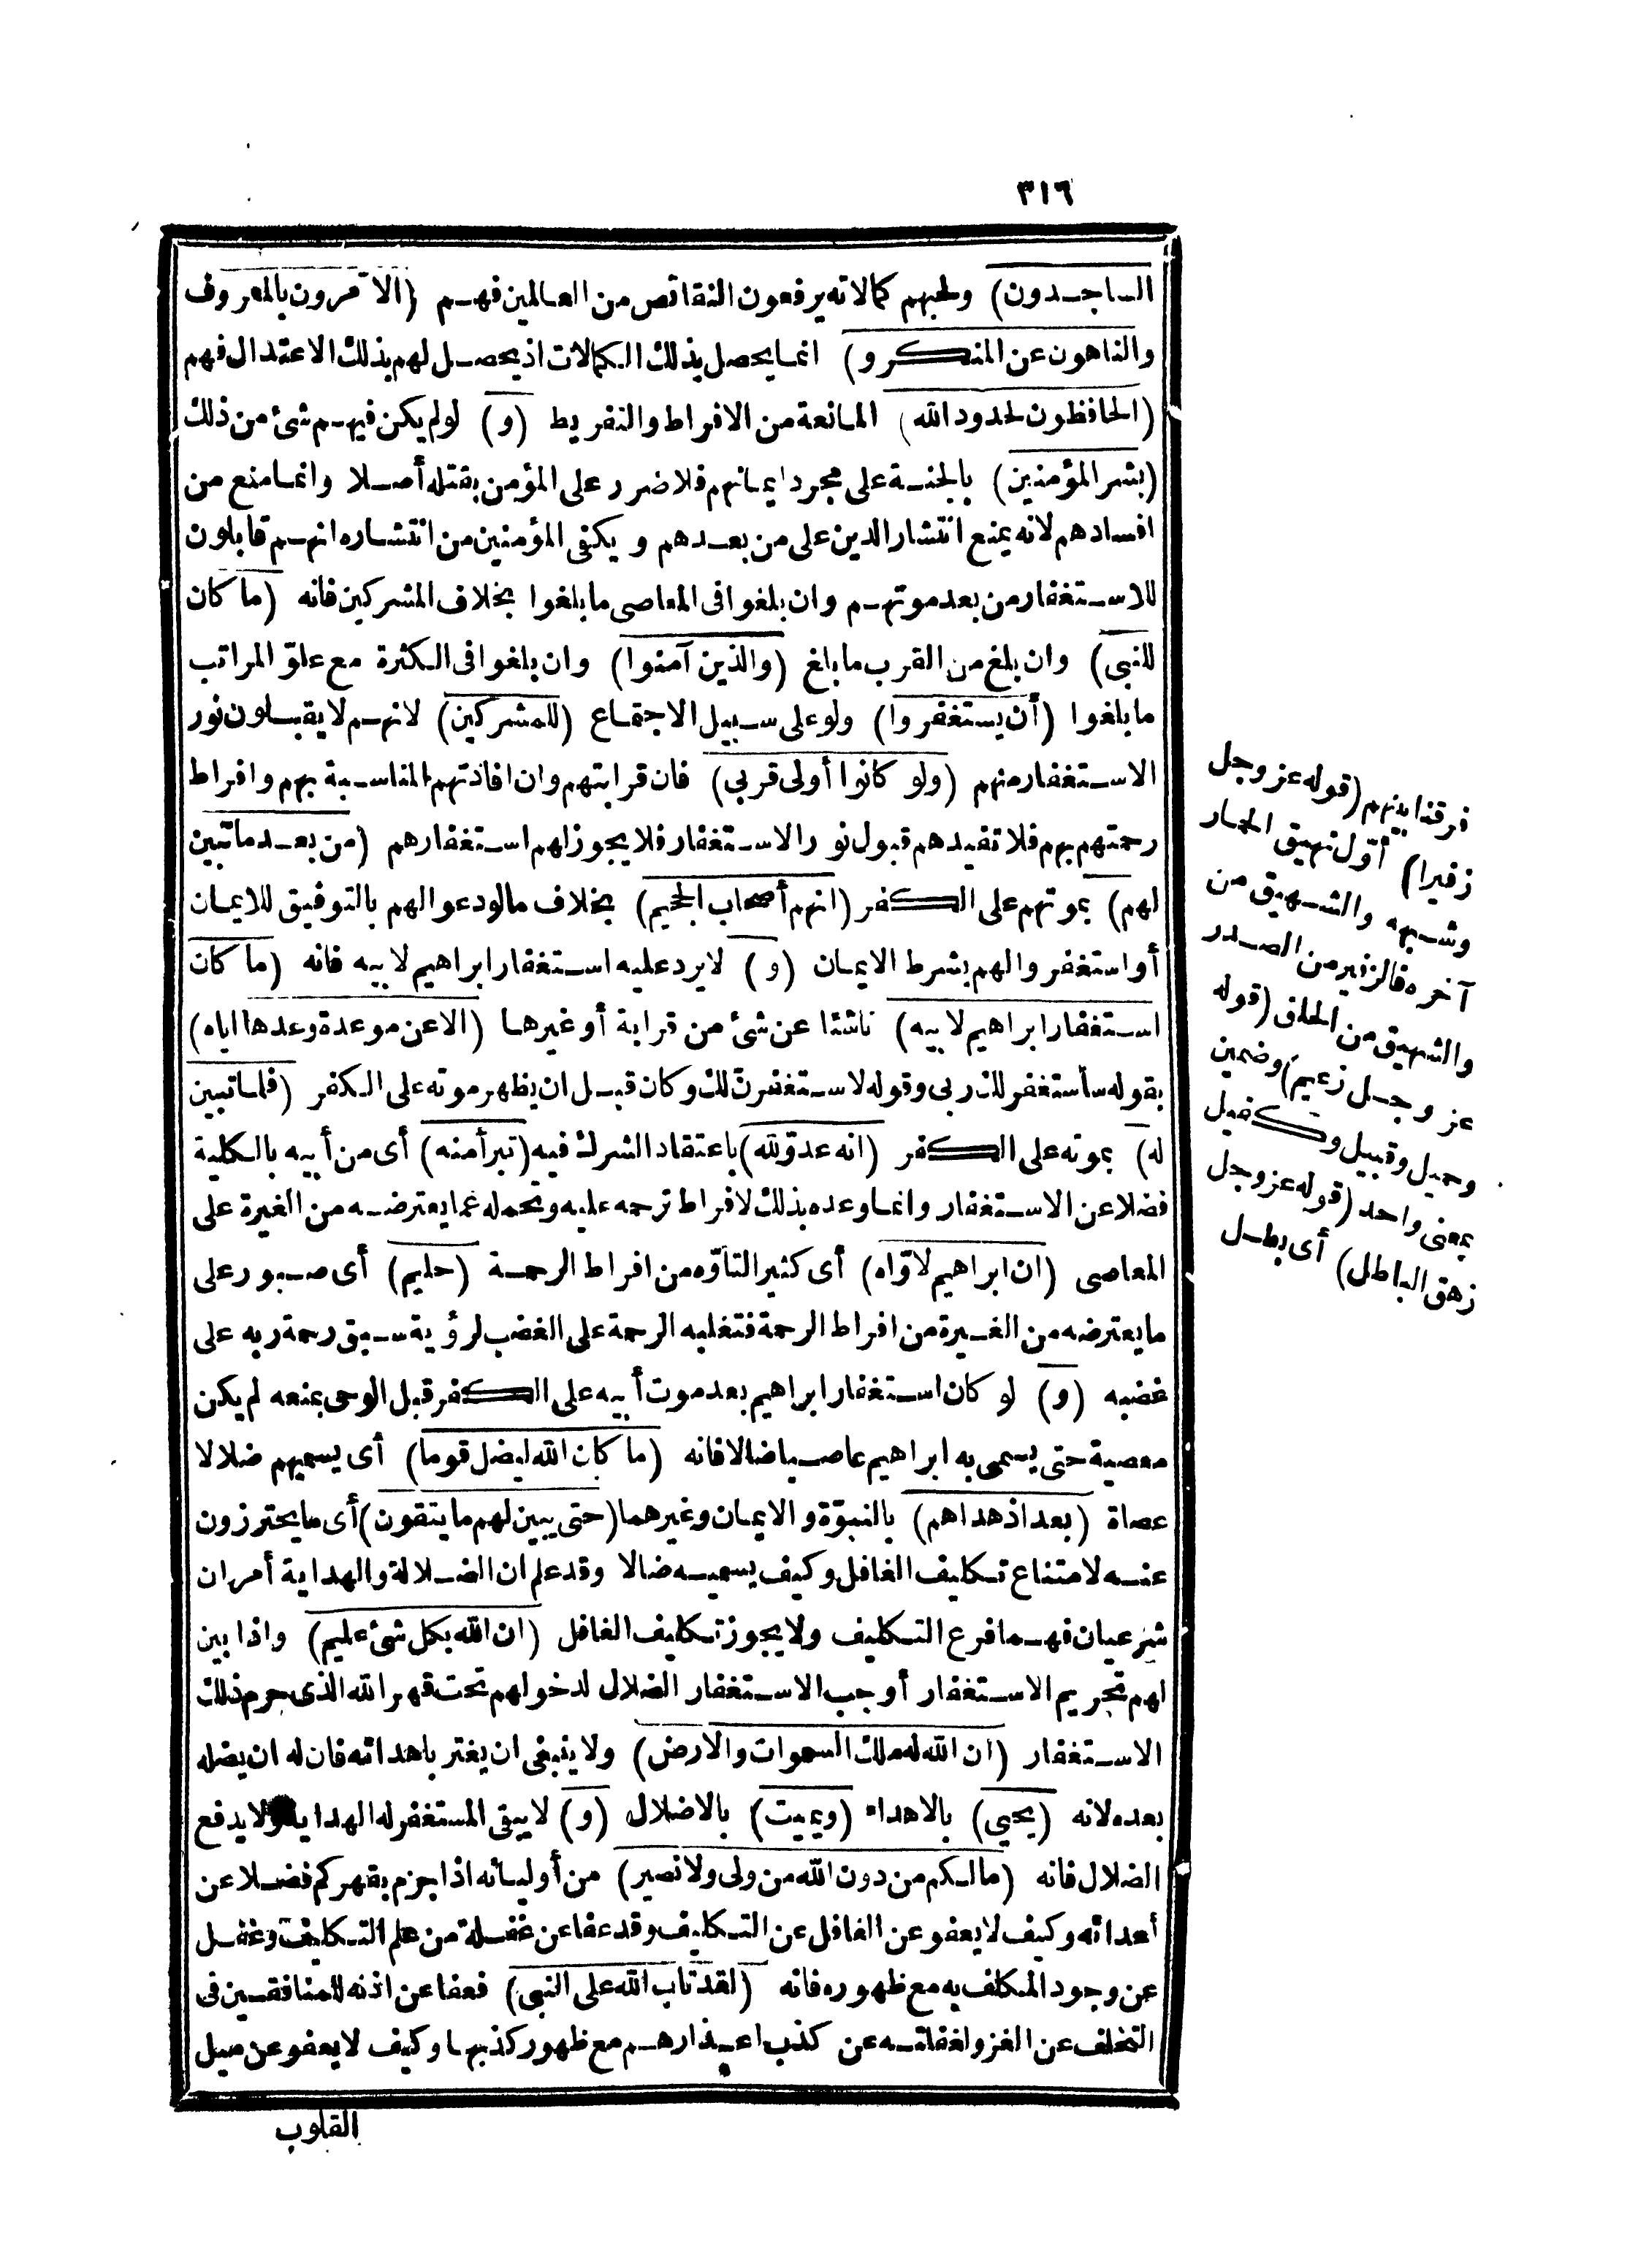 ٣١٦
الساجدون) ولحبهم كمالاته يرفعون النقائص من العالمين فهم (الآمرون بالمعروف
والناهون عن المنكر و) انما يحصل بذلك الكمالات اذ يحصل لهم بذلك الاعتدال فهم
(الحافظون لحدود الله) المانعة من الافراط والتفريط (و) لو لم يكن فيهم شئ من ذلك
(بشر المؤمنين) بالجنة على مجرد ايمانهم فلا ضرر على المؤمن بقتله أصلا وانما منع من
افسادهم لانه يمنع انتشار الدين على من بعدهم ويكفى المؤمنين من انتشاره انهم قابلون
للاستغفار من بعد موتهم وان بلغوا فى المعاصى ما بلغوا بخلاف المشركين فانه (ما كان
للنبى) وان بلغ من القرب ما بلغ (والذين آمنوا) وان بلغوا فى الكثرة مع علوّ المراتب
ما بلغوا (أن يستغفروا) ولو على سبيل الاجتماع (للمشركين) لانهم لا يقبلون نور
الاستغفار منهم (ولو كانوا أولى قربى) فان قرابتهم وان افادتهم المناسبة بهم وافراط
رحمتهم بهم فلا تفيدهم قبول نور الاستغفار فلا يجوز لهم استغفارهم (من بعد ما تبين
لهم) بموتهم على الكفر (انهم أصحاب الجحيم) بخلاف ما لو دعوا لهم بالتوفيق للايمان
أو استغفروا لهم بشرط الايمان (و) لا يرد عليه استغفار ابراهيم لابيه فانه (ما كان
استغفار ابراهيم لابيه) ناشئا عن شئ من قرابة أو غيرها (الا عن موعدة وعدها اياه)
بقوله سأستغفر لك ربى وقوله لاستغفرن لك وكان قبل ان يظهر موته على الكفر (فلما تبين
له) بموته على الكفر (انه عدوّ لله) باعتقاد الشرك فيه (تبرأ منه) أى من أبيه بالكلية
فضلا عن الاستغفار وانما وعده بذلك لافراط ترحمه عليه وتحمله عما يعترضه من الغيرة على
المعاصى (ان ابراهيم لاوّاه) أى كثير التأوّه من افراط الرحمة (حليم) أى صبور على
ما يعترضه من الغيرة من افراط الرحمة فتغلبه الرحمة على الغضب لرؤية سبق رحمة ربه على
غضبه (و) لو كان استغفار ابراهيم بعد موت أبيه على الكفر قبل الوحى بمنعه لم يكن
معصية حتى يسمى به ابراهيم عاصيا ضالا فانه (ما كان الله ليضل قوما) أى يسميهم ضلالا
عصاة (بعد اذ هداهم) بالنبوّة والايمان وغيرهما (حتى يبين لهم ما يتقون) أى ما يحترزون
عنه لامتناع تكليف الغافل وكيف يسميه ضالا وقد علم ان الضلالة والهداية أمران
شرعيان فهما فرع التكليف ولا يجوز تكليف الغافل (ان الله بكل شئ عليم) واذا بين
لهم تحريم الاستغفار أوجب الاستغفار الضلال لدخولهم تحت قهر الله الذى حرم ذلك
الاستغفار (ان الله له ملك السموات والارض) ولا ينبغى ان يغتر باهدائه فان له ان يضله
بعده لانه (يحيى) بالاهداء (ويميت) بالاضلال (و) لا يبقى المستغفر له الهداية ولا يدفع
الضلال فانه (مالكم من دون الله من ولى ولا نصير) من أوليائه اذا جزم بقهركم فضلا عن
أعدائه وكيف لا يعفو عن الغافل عن التكليف وقد عفا عن غفلة من علم التكليف وغفل
عن وجود المكلف به مع ظهوره فانه (لقد تاب الله على النبى) فعفا عن اذنه للمنافقين فى
التخلف عن الغزو لغفلته عن كذب اعذارهم مع ظهور كذبها وكيف لا يعفو عن ميل
القلوب
فرقنا بينهم (قوله عز وجل
زفيرا) أوّل نهيق الحمار
وشبهه والشهيق من
آخره فالزفير من الصدر
والشهيق من الحلق (قوله
عز وجل زعيم) وضمين
وحميل وقبيل وكفيل
بمعنى واحد (قوله عز وجل
زهق الباطل) أى بطل